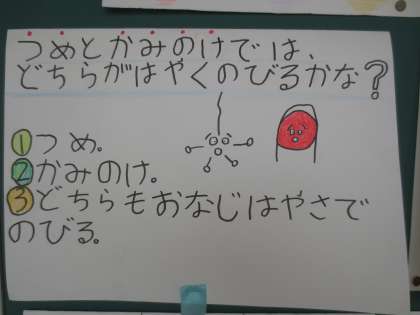 つめとかみのけでは、
どちらがはやくのびるかな?
①つめ。
②かみのけ。
③どちらもおなじはやさで
のびる。